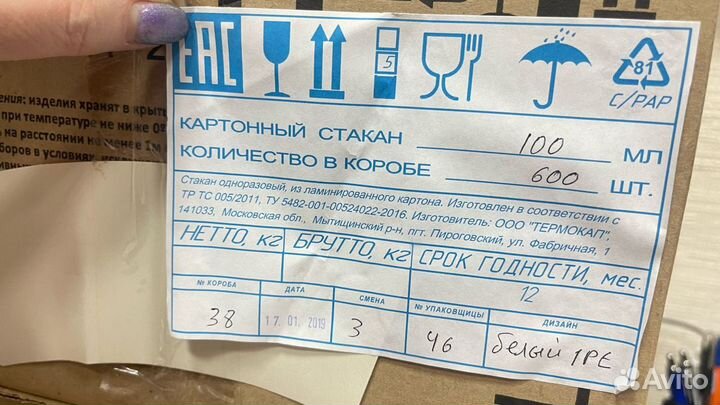 EAC
5
81
C/PAP
КАРТОННЫЙ СТАКАН 100 МЛ
КОЛИЧЕСТВО В КОРОБЕ 600 ШТ.
Стакан одноразовый, из ламинированного картона. Изготовлен в соответствии с
ТР ТС 005/2011, ТУ 5482-001-00524022-2016. Изготовитель: ООО "ТЕРМОКАП",
141033, Московская обл., Мытищинский р-н, пгт. Пироговский, ул. Фабричная, 1
НЕТТО, кг БРУТТО, кг СРОК ГОДНОСТИ, мес.
12
№ КОРОБА ДАТА СМЕНА № УПАКОВЩИЦЫ ДИЗАЙН
38 17.01.2019 3 46 белый 1PE
изделия хранят в крыты
при температуре не ниже 0
на расстоянии не менее 1м
боров в условиях
Avito